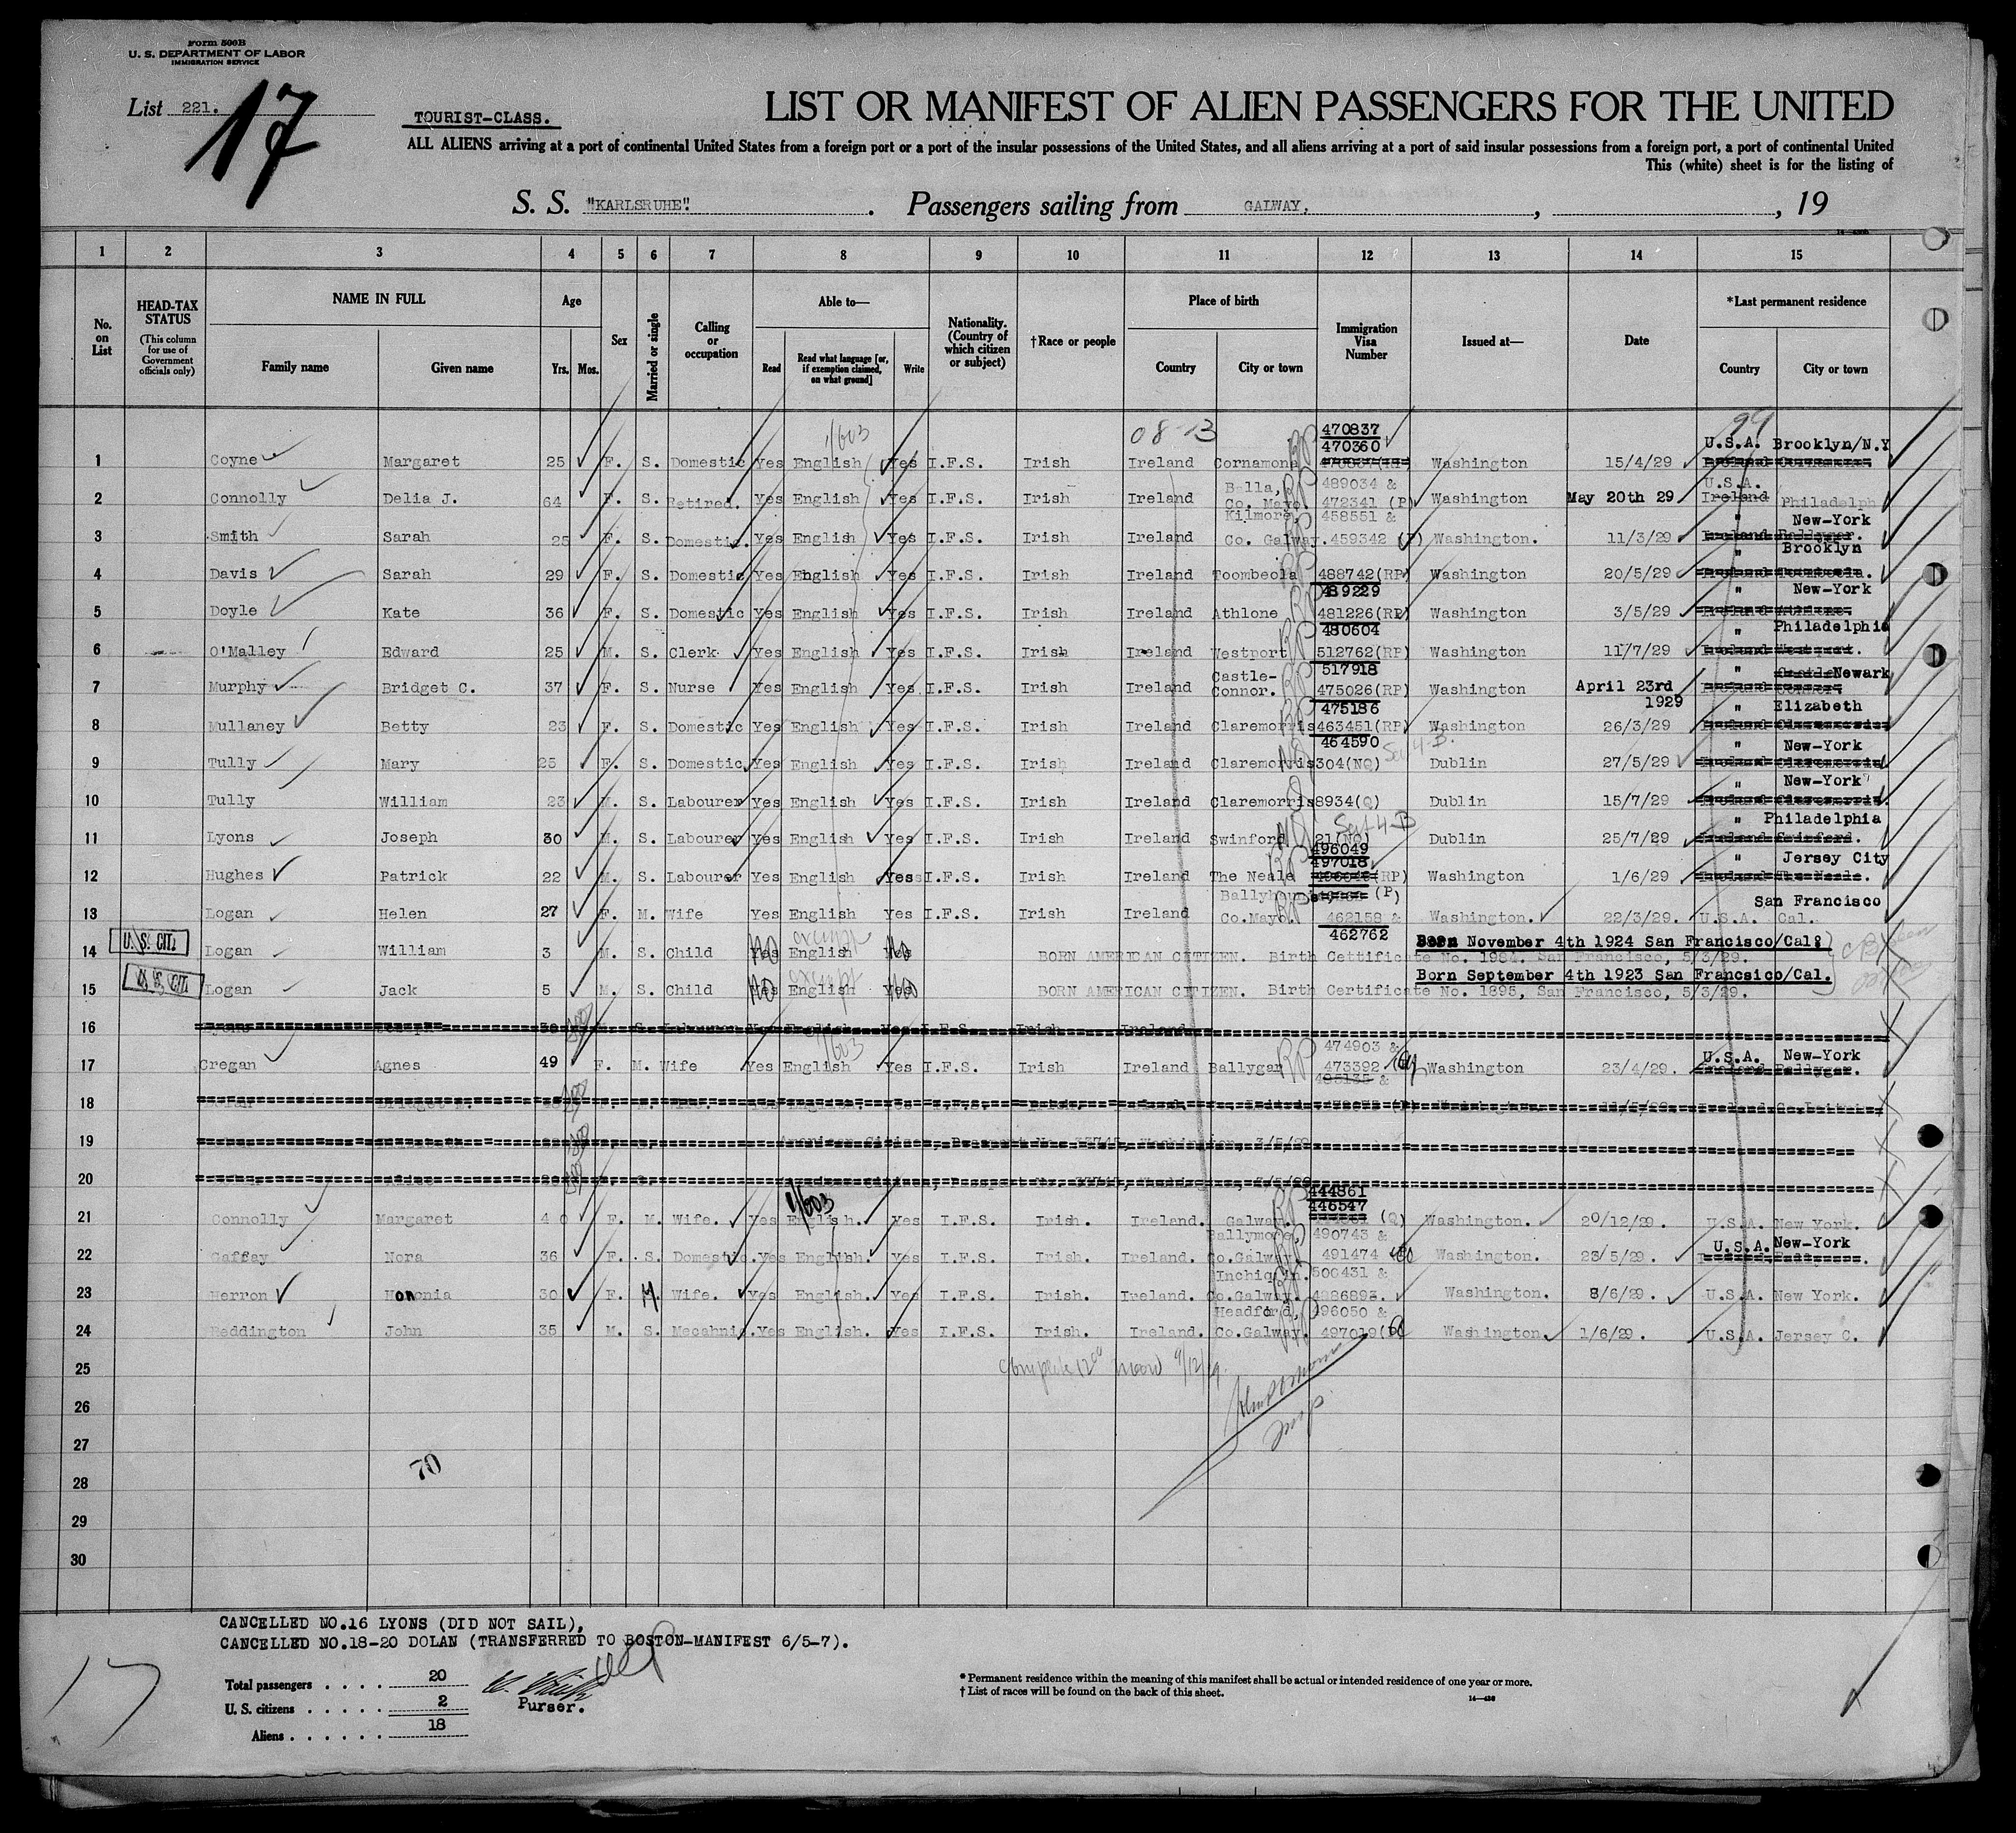 Form 500B
U. S. DEPARTMENT OF LABOR
IMMIGRATION SERVICE
List 221.
17
TOURIST-CLASS.
LIST OR MANIFEST OF ALIEN PASSENGERS FOR THE UNITED
ALL ALIENS arriving at a port of continental United States from a foreign port or a port of the insular possessions of the United States, and all aliens arriving at a port of said insular possessions from a foreign port, a port of continental United
This (white) sheet is for the listing of
S. S. "KARLSRUHE". Passengers sailing from GALWAY, , 19
1 2 3 4 5 6 7 8 9 10 11 12 13 14 15
No. on List
HEAD-TAX STATUS (This column for use of Government officials only)
NAME IN FULL Family name Given name
Age Yrs. Mos.
Sex
Married or single
Calling or occupation
Able to— Read Read what language [or, if exemption claimed, on what ground] Write
Nationality. (Country of which citizen or subject)
†Race or people
Place of birth Country City or town
Immigration Visa Number
Issued at—
Date
*Last permanent residence Country City or town
1/603 08-13 470837 99
470360 U.S.A. Brooklyn/N.Y
1 Coyne Margaret 25 F. S. Domestic Yes English Yes I.F.S. Irish Ireland Cornamona RP Washington 15/4/29
Balla, 489034 & U.S.A.
2 Connolly Delia J. 64 F. S. Retired. Yes English Yes I.F.S. Irish Ireland Co. Mayo RP 472341 (P) Washington May 20th 29 Ireland Philadelph
Kilmore, 458551 & " New-York
3 Smith Sarah 25 F. S. Domestic. Yes English Yes I.F.S. Irish Ireland Co. Galway. 459342 (P) Washington. 11/3/29 Ireland Ballygar.
" Brooklyn
4 Davis Sarah 29 F. S. Domestic Yes English Yes I.F.S. Irish Ireland Toombeola RP 488742(RP) Washington 20/5/29 Ireland Toombeola.
489229 " New-York
5 Doyle Kate 36 F. S. Domestic Yes English Yes I.F.S. Irish Ireland Athlone RP 481226(RP) Washington 3/5/29 Ireland Athlone.
480604 " Philadelphia
6 O'Malley Edward 25 M. S. Clerk Yes English Yes I.F.S. Irish Ireland Westport RP 512762(RP) Washington 11/7/29 Ireland Westport.
517918 " Newark
Castle-
7 Murphy Bridget C. 37 F. S. Nurse Yes English Yes I.F.S. Irish Ireland Connor. RP 475026(RP) Washington April 23rd 1929 Ireland
475186 " Elizabeth
8 Mullaney Betty 23 F. S. Domestic Yes English Yes I.F.S. Irish Ireland Claremorris 463451(RP) Washington 26/3/29 Ireland Claremorris
464590 Sec 4-B. " New-York
9 Tully Mary 25 F. S. Domestic Yes English Yes I.F.S. Irish Ireland Claremorris NQ 304(NQ) Dublin 27/5/29 Ireland Claremorris
" New-York
10 Tully William 23 M. S. Labourer Yes English Yes I.F.S. Irish Ireland Claremorris Q 8934(Q) Dublin 15/7/29 Ireland Claremorris.
Sect 4-B " Philadelphia
11 Lyons Joseph 30 M. S. Labourer Yes English Yes I.F.S. Irish Ireland Swinford NQ 21(NQ) Dublin 25/7/29 Ireland Swinford.
496049
497018 " Jersey City
12 Hughes Patrick 22 M. S. Labourer Yes English Yes I.F.S. Irish Ireland The Neale RP (RP) Washington 1/6/29 Ireland The Neale.
(P) San Francisco
13 Logan Helen 27 F. M. Wife Yes English Yes I.F.S. Irish Ireland Co.Mayo. RP 462158 & Washington. 22/3/29. U.S.A. Cal.
exempt 462762 Born November 4th 1924 San Francisco/Cal.
U. S. CIT.
14 Logan William 3 M. S. Child No English No BORN AMERICAN CITIZEN. Birth Certificate No. 1984. San Francisco, 5/3/29.
exempt Born September 4th 1923 San Francsico/Cal.
U. S. CIT.
15 Logan Jack 5 M. S. Child No English No BORN AMERICAN CITIZEN. Birth Certificate No. 1895, San Francisco, 5/3/29.
16 Lyons Joseph 30 S. Labourer Yes English Yes I.F.S. Irish Ireland
1/603 474903 & U.S.A. New-York
17 Cregan Agnes 49 F. M. Wife Yes English Yes I.F.S. Irish Ireland Ballygar RP 473392 Washington 23/4/29. Ireland Ballygar.
485135 &
18 Dolan Bridget
19
20
1/603 444861
446547
21 Connolly Margaret 40 F. M. Wife. Yes English. Yes I.F.S. Irish. Ireland. Galway. RP (Q) Washington. 20/12/29. U.S.A. New York.
Ballymore,) 490743 & U.S.A. New-York
22 Gaffey Nora 36 F. S. Domestic. Yes English. Yes I.F.S. Irish. Ireland. Co.Galway. RP 491474 Washington. 23/5/29.
Inchiquin. 500431 &
23 Herron Hononia 30 F. M. Wife. Yes English. Yes I.F.S. Irish. Ireland. Co.Galway. RP Washington. 8/6/29. U.S.A. New York.
Headford, 496050 &
24 Reddington John 35 M. S. Mecahnic. Yes English. Yes I.F.S. Irish. Ireland. Co.Galway. RP 497019(P) Washington. 1/6/29. U.S.A. Jersey C.
25 Complete 12 00 noon 9/12/29.
26
27
28 70
29
30
CANCELLED NO.16 LYONS (DID NOT SAIL),
CANCELLED NO.18-20 DOLAN (TRANSFERRED TO BOSTON-MANIFEST 6/5-7).
17
Total passengers . . . . 20
U. S. citizens . . . . . 2
Aliens . . . . . . 18
Purser.
* Permanent residence within the meaning of this manifest shall be actual or intended residence of one year or more.
† List of races will be found on the back of this sheet.